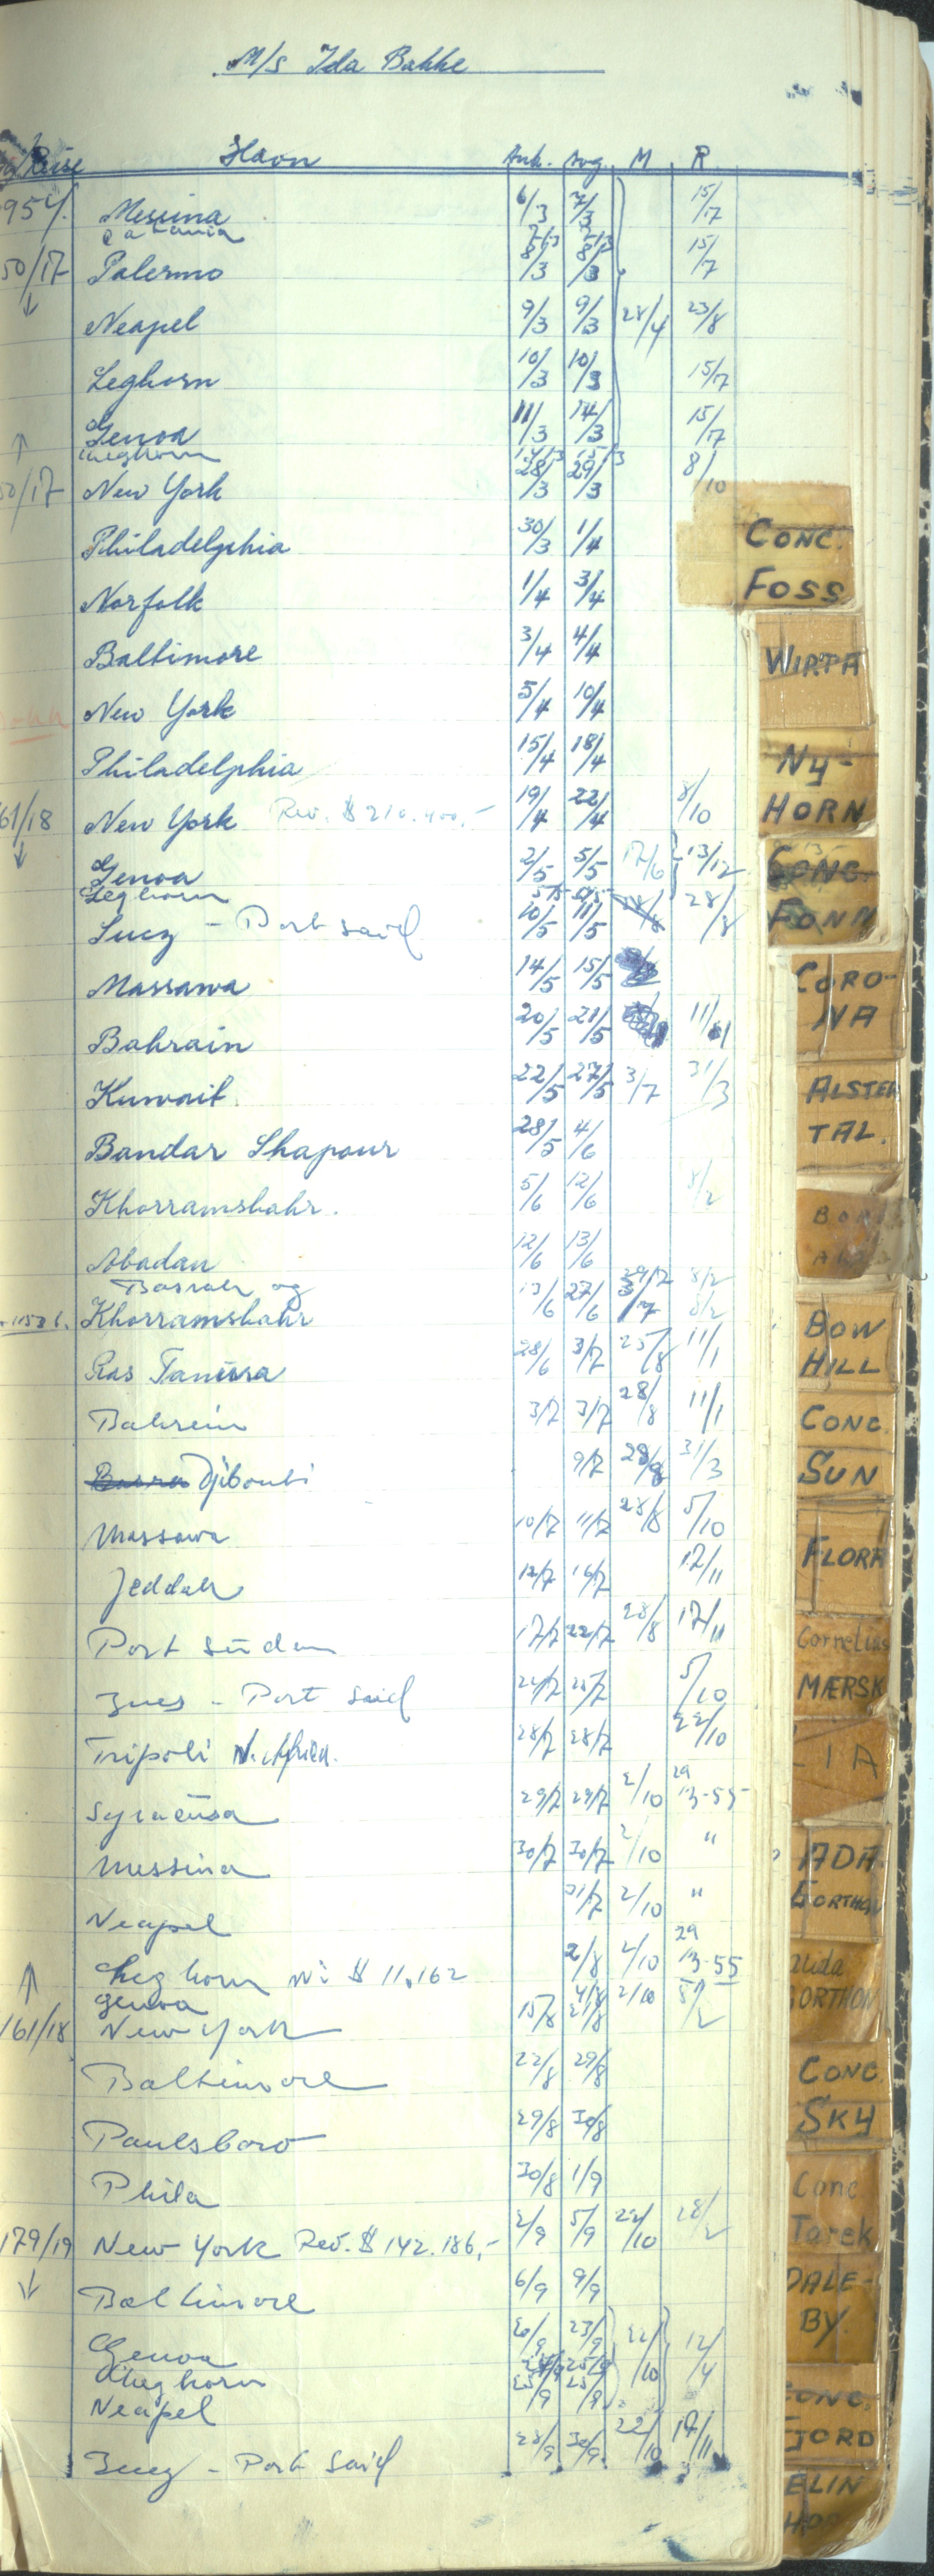 M/s Ida Bakke
Reise Havn Ank. Avg. M R.
954. Messina 6/3 7/3 15/17
Catania 7/3 7/3
50/17 Palermo 8/3 8/3 15/7
↓ Neapel 9/3 9/3 28/4 23/8
Leghorn 10/3 10/3 15/17
↑ Genoa 11/3 14/3 15/17
Leghorn 14/3 15/3
50/17 New York 28/3 29/3 8/10
Philadelphia 30/3 1/4
Norfolk 1/4 3/4
Baltimore 3/4 4/4
New York 5/4 10/4
Philadelphia 15/4 18/4
61/18 New York Rev. $ 210.400,- 19/4 22/4 8/10
↓ Genoa 2/5 5/5 17/6 13/12
Leghorn 5/5 5/5
Suez - Port Said 10/5 11/5 28/8
Massawa 14/5 15/5
Bahrain 20/5 21/5 11/1
Kuwait. 22/5 27/5 3/7 31/3
Bandar Shapour 28/5 4/6
Khorramshahr. 5/6 12/6 8/2
Abadan 12/6 13/6
Basrah og 29/7 8/2
Khorramshahr 13/6 27/6 8/2
Ras Tanura 28/6 3/7 25/8 11/1
Bahrein 3/7 3/7 28/8 11/1
Basra Djibouti 9/7 28/8 31/3
Massawa 10/7 11/7 28/8 5/10
Jeddah 12/7 16/7 17/11
Port Sudan 17/7 22/7 28/8 17/11
Suez - Port Said 24/7 25/7 5/10
Tripoli N. Afrika. 28/7 28/7 22/10
Syracusa 29/7 29/7 2/10 29/3-55
Messina 30/7 30/7 2/10 "
Neapel 31/7 2/10 "
↑ Leghorn M: $ 11,162 2/8 2/10 29/3-55
Genoa 4/8 2/10 8/2
161/18 New York 15/8 21/8
Baltimore 22/8 29/8
Paulsboro 29/8 30/8
Phila 30/8 1/9
179/19 New York Rev. $ 142.186,- 2/9 5/9 22/10 28/2
↓ Baltimore 6/9 9/9
Genoa 20/9 23/9 22/10 12/4
Leghorn 24/9 25/9
Neapel 25/9 25/9
Suez - Port Said 28/9 30/9 22/10 17/11
CONC.
FOSS
WIRTA
NY-
HORN
CONC.
FONN
CORO-
NA
ALSTER
TAL.
BOW
HILL
CONC.
SUN
FLORA
Cornelius
MÆRSK
ADA
GORTHON
Alida
GORTHON
CONC.
SKY
Conc.
Tarek
DALE-
BY.
CONC.
FJORD
ELIN
HOPE